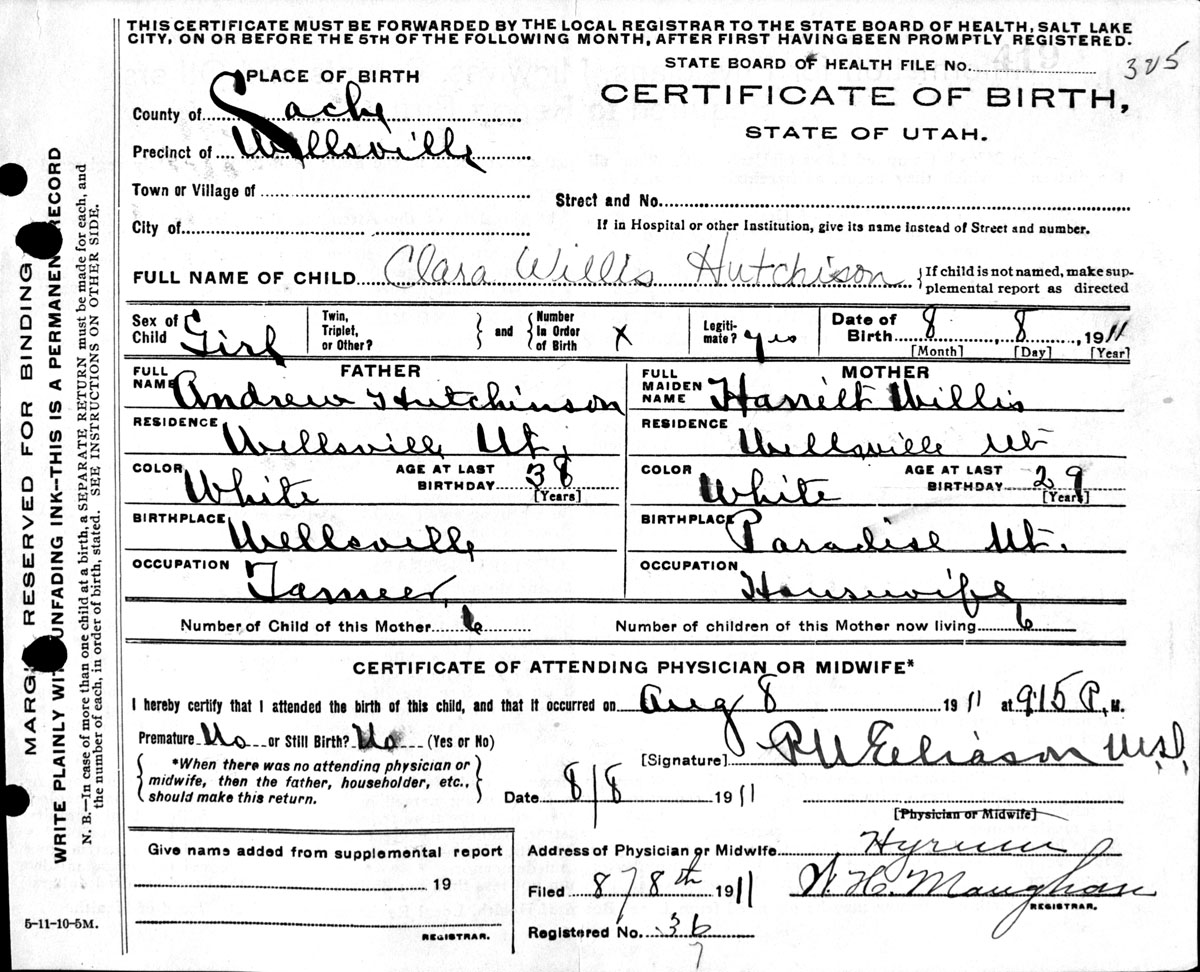 THIS CERTIFICATE MUST BE FORWARDED BY THE LOCAL REGISTRAR TO THE STATE BOARD OF HEALTH, SALT LAKE
CITY, ON OR BEFORE THE 5TH OF THE FOLLOWING MONTH, AFTER FIRST HAVING BEEN PROMPTLY REGISTERED.
STATE BOARD OF HEALTH FILE No. 325
PLACE OF BIRTH
CERTIFICATE OF BIRTH,
STATE OF UTAH.
County of Cache
Precinct of Wellsville
Town or Village of
Street and No.
City of
If in Hospital or other Institution, give its name instead of Street and number.
FULL NAME OF CHILD Clara Willis Hutchison { If child is not named, make sup-
plemental report as directed
Sex of Child Girl Twin, Triplet, or Other? } and { Number In Order of Birth X Legiti- mate? yes Date of Birth 8, 8, 1911
[Month] [Day] [Year]
FATHER
FULL NAME Andrew Hutchinson
RESIDENCE Wellsville Ut.
COLOR White AGE AT LAST BIRTHDAY 38 [Years]
BIRTHPLACE Wellsville
OCCUPATION Farmer
MOTHER
FULL MAIDEN NAME Harriett Willis
RESIDENCE Wellsville Ut
COLOR White AGE AT LAST BIRTHDAY 29 [Year]
BIRTHPLACE Paradise Ut.
OCCUPATION Housewife
Number of Child of this Mother 6 Number of children of this Mother now living 6
CERTIFICATE OF ATTENDING PHYSICIAN OR MIDWIFE*
I hereby certify that I attended the birth of this child, and that it occurred on Aug 8 1911 at 915 P. M.
Premature No or Still Birth? No (Yes or No)
[Signature] Eliason M.D.
*When there was no attending physician or
midwife, then the father, householder, etc.,
should make this return.
Date 8/8 1911
[Physician or Midwife]
Give name added from supplemental report
19
REGISTRAR.
Address of Physician or Midwife Hyrum
Filed 8/8th 1911 W. H. Maughan
REGISTRAR.
Registered No. 36
7
5-11-10-5M.
MARGIN RESERVED FOR BINDING
WRITE PLAINLY WITH UNFADING INK--THIS IS A PERMANENT RECORD
N. B.--In case of more than one child at a birth, a SEPARATE RETURN must be made for each, and
the number of each, in order of birth, stated. SEE INSTRUCTIONS ON OTHER SIDE.